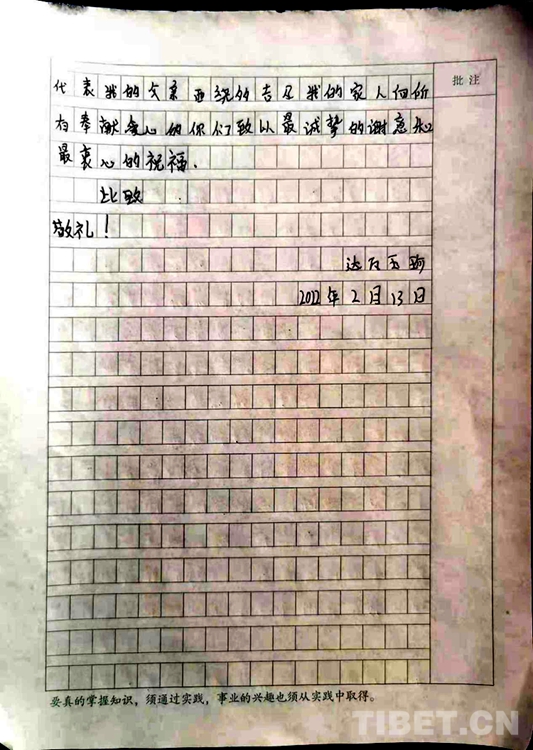 批注
代表我的父亲西绕多吉及我的家人向所
有奉献爱心的你们致以最诚挚的谢意和
最衷心的祝福.
此致
敬礼！
达瓦玉
2022年2月13日
要真的掌握知识，须通过实践，事业的兴趣也须从实践中取得。
TIBET.CN